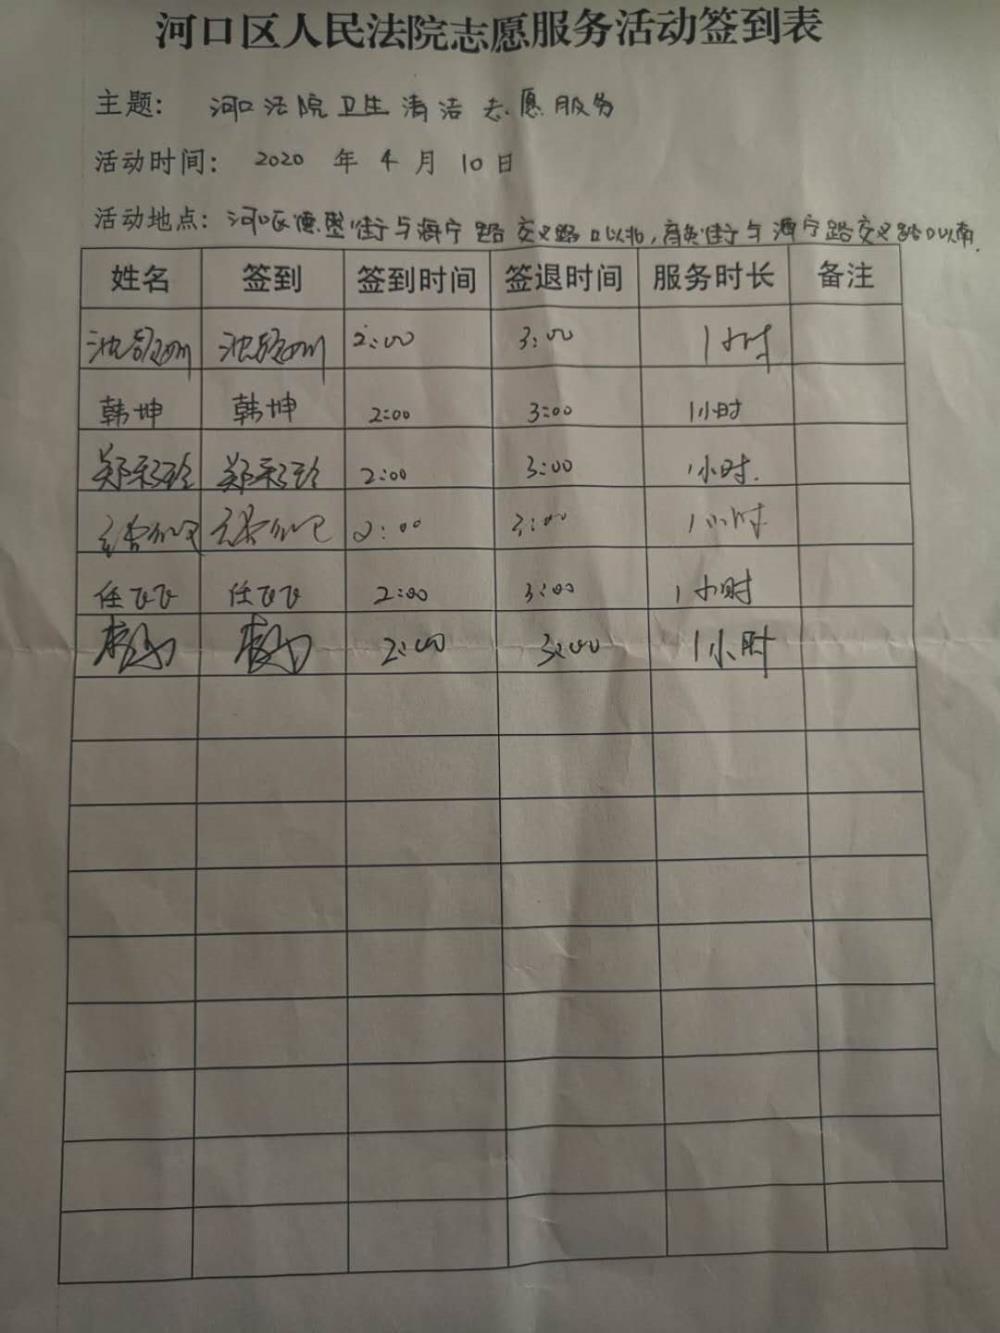 河口区人民法院志愿服务活动签到表
主题: 河口法院卫生清洁志愿服务
活动时间: 2020 年 4 月 10 日
活动地点: 河口区 街与海宁路交叉路口以北, 街与海宁路交叉路口以南.
姓名 签到 签到时间 签退时间 服务时长 备注
2:00 3:00 1小时
韩坤 韩坤 2:00 3:00 1小时
郑彩玲 郑彩玲 2:00 3:00 1小时.
2:00 3:00 1小时
任飞飞 任飞飞 2:00 3:00 1小时
2:00 3:00 1小时